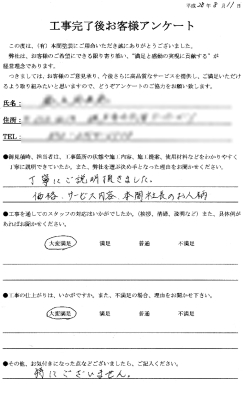 平成28年8月11日
工事完了後お客様アンケート
この度は、(有)本間塗装にご用命いただき誠にありがとうございました。
弊社は、お客様のご希望にできる限り寄り添い、"満足と感動の実現に貢献する"が
経営理念であります。
つきましては、お客様のご意見承り、今後さらに高品質なサービスを提供し、ご満足いただけ
るよう取り組みたいと思いますので、どうぞアンケートのご協力をお願い致します。
氏名:
住所:
TEL:
●御見積時、担当者は、工事箇所の状態や施工内容、施工提案、使用材料などをわかりやすく
丁寧に説明できていたか。また、弊社を選ぶ決め手となった理由をお聞かせください。
丁寧にご説明頂きました。
価格、サービス内容、本間社長のお人柄
●工事を通してのスタッフの対応はいかがでしたか。(挨拶、清掃、説明など)また、具体例が
あればお聞かせください。
大変満足 満足 普通 不満足
●工事の仕上がりは、いかがですか。また、不満足の場合、理由をお聞かせ下さい。
大変満足 満足 普通 不満足
●その他、お気付きになった点などございましたら、ご記入ください。
特にございません。